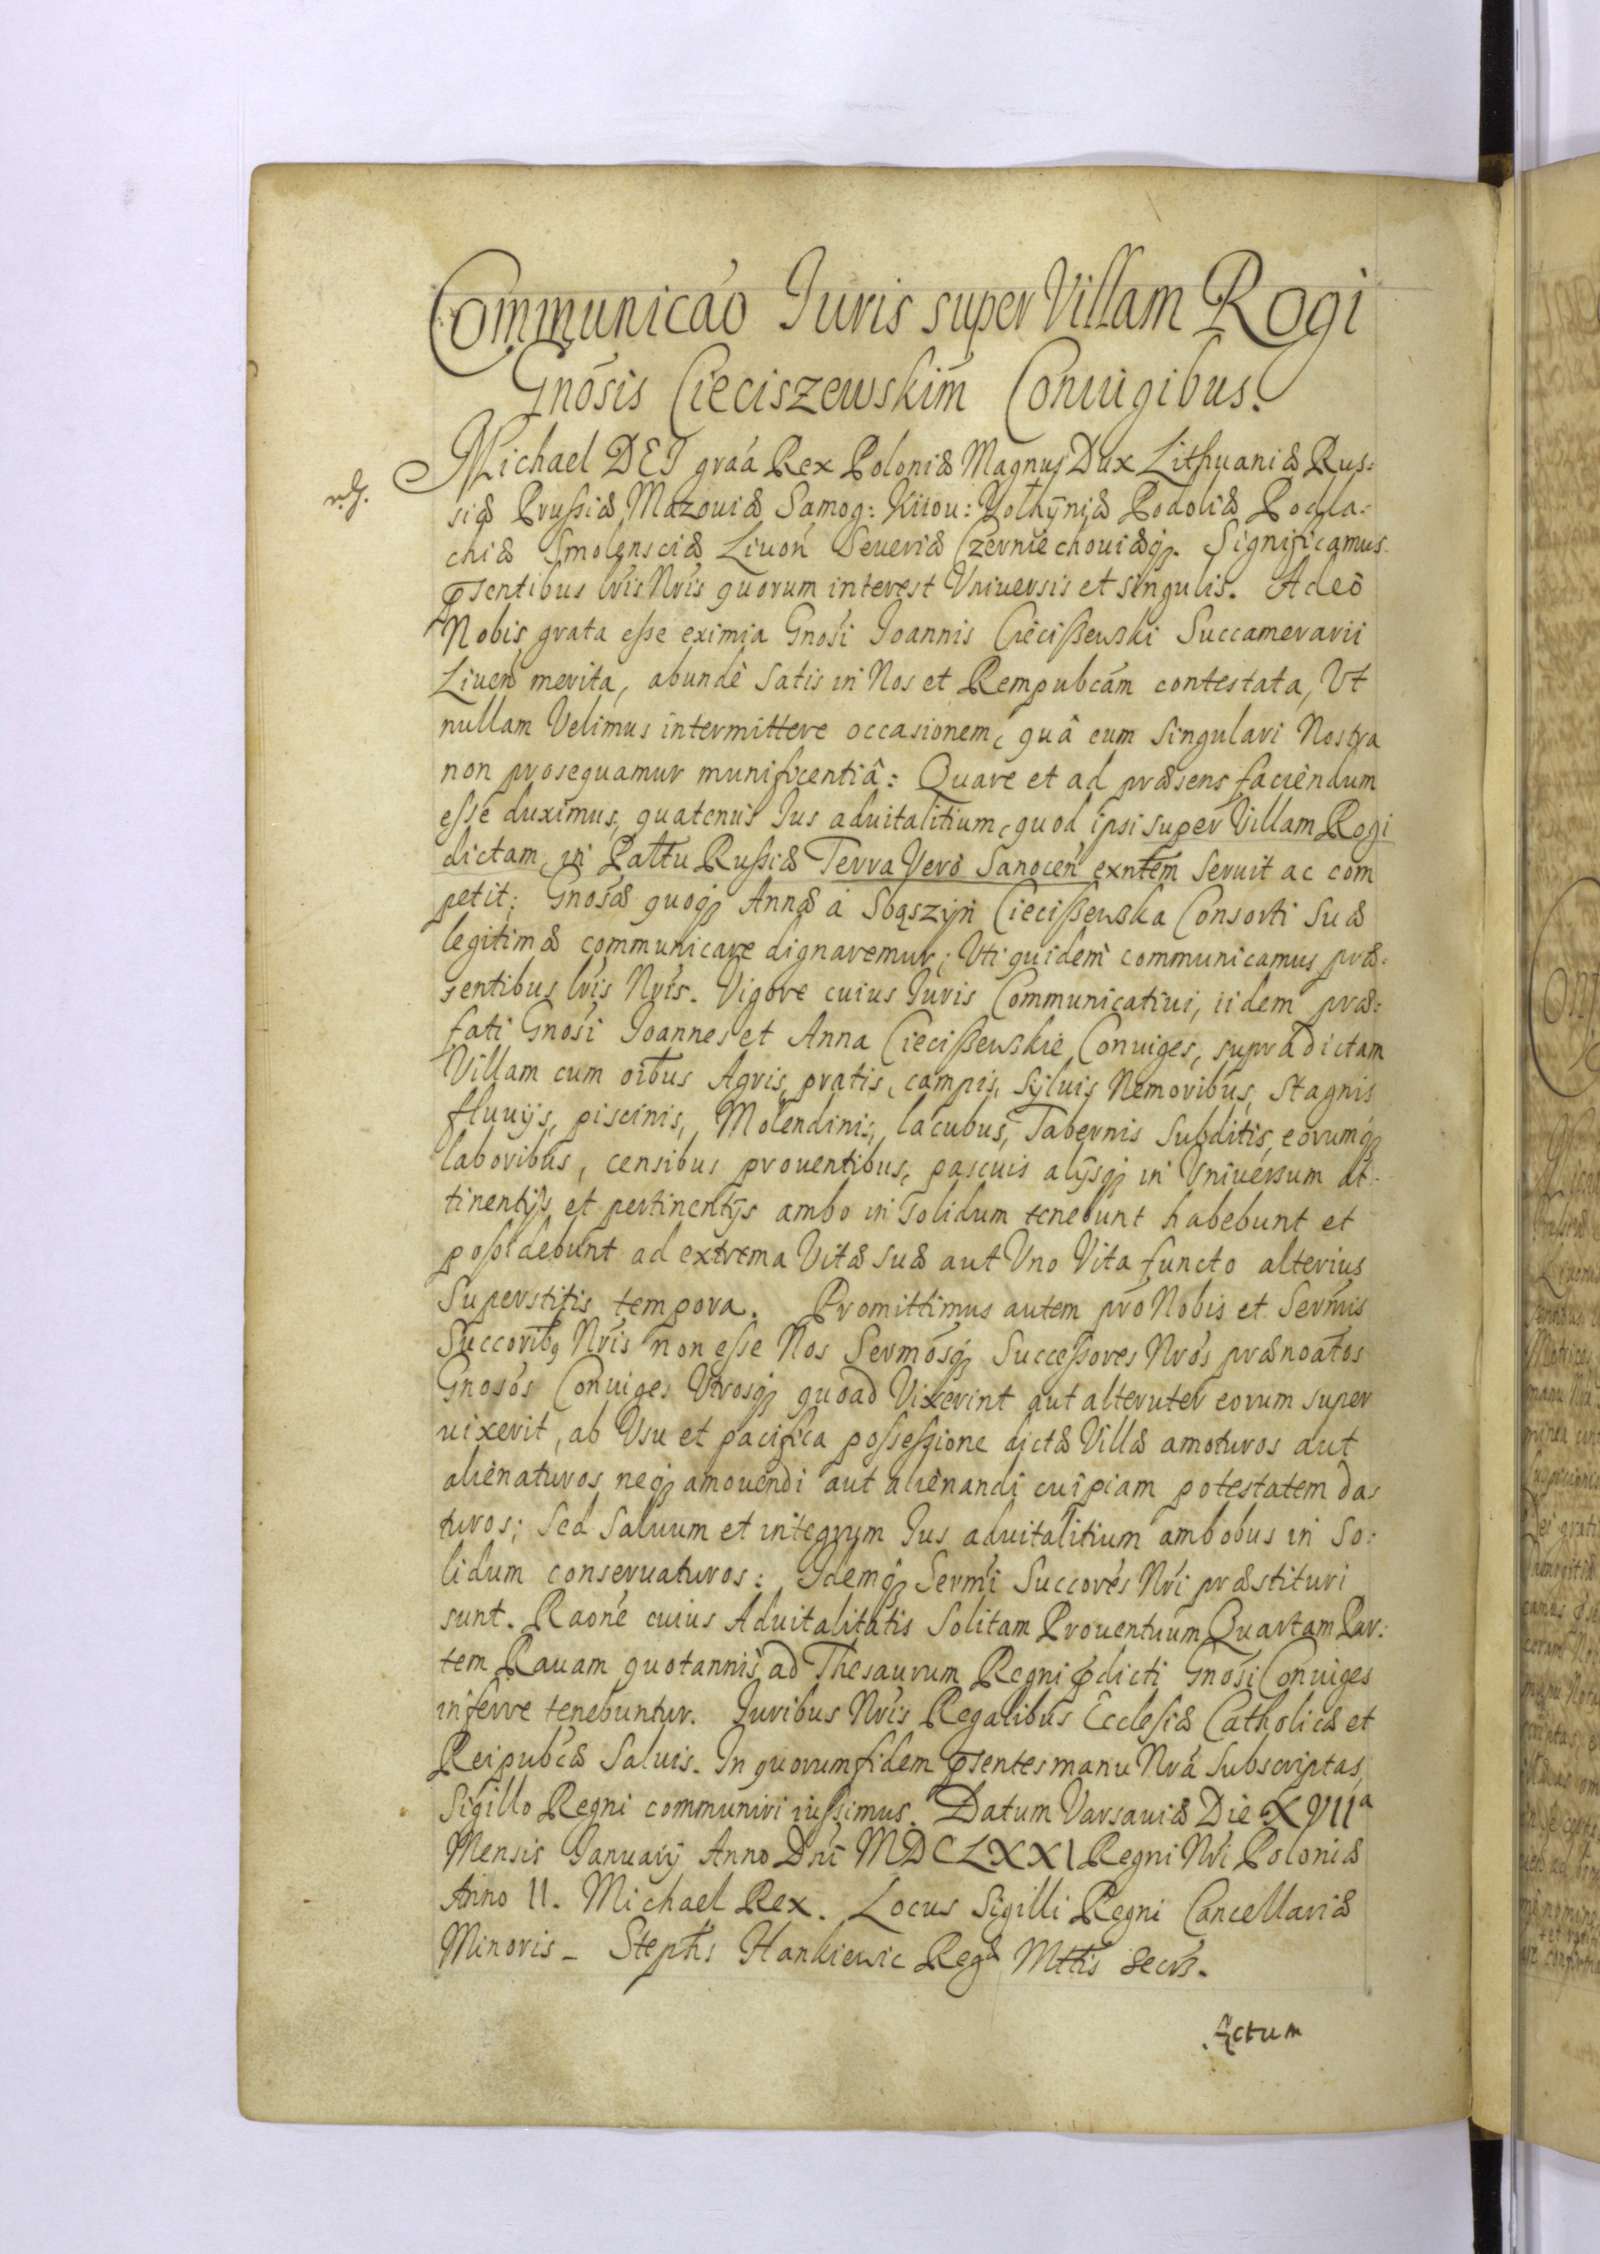 Communicáo Iuris super Villam Rogi
Gnósis Cieciszewskim̃ Coniugibus.
Michael DEI graá Rex Poloniæ Magnus Dux Lithuaniæ Rus:
siæ Prussiæ Mazouiæ Samog: Kiiou: Volhÿniæ Podoliæ Podla-
chiæ Smolensciæ Liuoń Seueriæ Czerniechouiæq́. Significamus
pŝentibus lr̃is Nr̃is quorum interest Vniuersis et singulis. Adeò
Nobis grata esse eximia Gnosi Ioannis Cieciszewski Succamerarii
Liueń merita, abundè satis in Nos et Rempubcám contestata, Vt
nullam Velimus intermittere occasionem, quâ eum singulari Nostra
non prosequamur munificentiâ: Quare et ad præsens faciendum
esse duximus, quatenus Ius aduitalitium, quod ipsi super Villam Rogi
dictam, in Pałttu Russiæ Terra Verò Sanoceń exñtem seruit ac com
petit; Gnosæ quoq́ Annæ à Sbąszÿń Cieciszewska Consorti suæ
legitimæ communicare dignaremur; Vti quidem communicamus præ:
sentibus lr̃is Nr̃is. Vigore cuius Iuris Communicatiui, iidem præ:
fati Gnosi Ioannes et Anna Cieciszewskie Coniuges, supradictam
Villam cum oibus Agris, pratis, campis, syluis Nemoribus, Stagnis
fluuijs, piscinis, Molendinis, lacubus, Tabernis Subditis, eorumq́
laboribus, censibus prouentibus, pascuis alijsq́ in Vniuersum at-
tinentijs et pertinentijs ambo in solidum tenebunt habebunt et
possidebunt ad extrema Vitæ suæ aut Vno Vita functo alterius
Superstitis tempora. Promittimus autem pro Nobis et Serm̃is
Succorib9 Nr̃is non esse Nos Sermósq́ Successores Nrós prænoatos
Gnosós Coniuges Vtrosq́ quoad Vixerint aut alteruter eorum super
uixerit, ab Vsu et pacifica possessione dictæ Villæ amoturos aut
alienaturos, neq́ amouendi aut alienandi cuipiam potestatem da-
turos; Sed Saluum et integrum Ius aduitalitium ambobus in so:
lidum conseruaturos: Idemq́ Serm̃i Succorés Nr̃i præstituri
sunt. Raoné cuius Aduitalitatis Solitam Prouentuum Quartam Par:
tem Rauam quotannis ad Thesaurum Regni p̃dicti Gnosi Coniuges
inferre tenebuntur. Iuribus Nr̃is Regalibus Ecclesiæ Catholicæ et
Reipubcæ Saluis. In quorum fidem pŝentes manu Nrâ Subscriptas,
Sigillo Regni communiri iussimus. Datum Varsauiæ Die XVIIª
Mensis Ianuarij Anno Dni MDCLXXI Regni Nr̃i Poloniæ
Anno II. Michael Rex. Locus Sigilli Regni Cancellariæ
Minoris - Stephs Hankiewic Regæ Mttis Secrs.
Actum